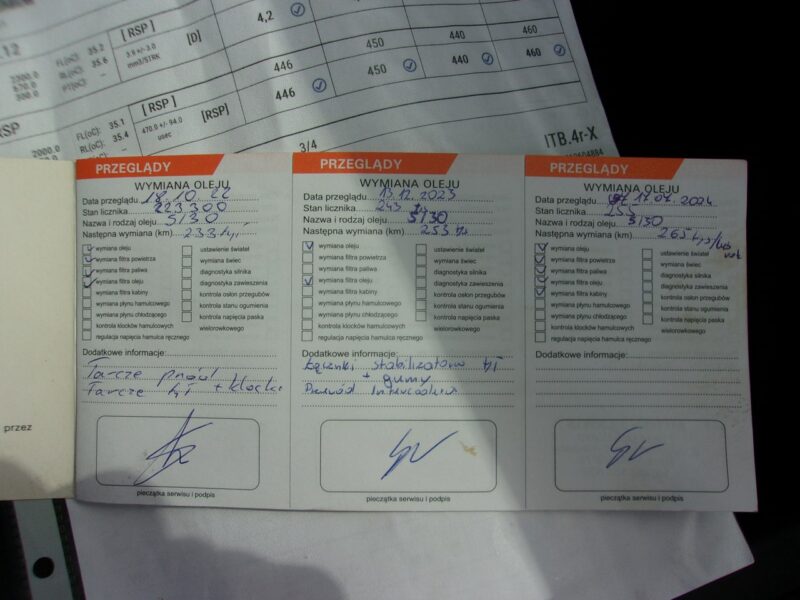 [ RSP ]
[D]
4,2
446
450
440
460
[ RSP ]
[RSP]
446
450
440
460
3/4
ITB.4r-X
PRZEGLĄDY
WYMIANA OLEJU
Data przeglądu 18.10.22
Stan licznika 223 300
Nazwa i rodzaj oleju 5/30
Następna wymiana (km) 233 tyś
wymiana oleju
wymiana filtra powietrza
wymiana filtra paliwa
wymiana filtra oleju
wymiana filtra kabiny
wymiana płynu hamulcowego
wymiana płynu chłodzącego
kontrola klocków hamulcowych
regulacja napięcia hamulca ręcznego
ustawienie świateł
wymiana świec
diagnostyka silnika
diagnostyka zawieszenia
kontrola osłon przegubów
kontrola stanu ogumienia
kontrola napięcia paska
wielorowkowego
Dodatkowe informacje:
Tarcze przód
Tarcze tył + klocki
pieczątka serwisu i podpis
PRZEGLĄDY
WYMIANA OLEJU
Data przeglądu 13.12.2023
Stan licznika 243
Nazwa i rodzaj oleju 5/30
Następna wymiana (km) 253
wymiana oleju
wymiana filtra powietrza
wymiana filtra paliwa
wymiana filtra oleju
wymiana filtra kabiny
wymiana płynu hamulcowego
wymiana płynu chłodzącego
kontrola klocków hamulcowych
regulacja napięcia hamulca ręcznego
ustawienie świateł
wymiana świec
diagnostyka silnika
diagnostyka zawieszenia
kontrola osłon przegubów
kontrola stanu ogumienia
kontrola napięcia paska
wielorowkowego
Dodatkowe informacje:
Łączniki stabilizatora tył
+ gumy
Przewód Intercoolera
pieczątka serwisu i podpis
PRZEGLĄDY
WYMIANA OLEJU
Data przeglądu 17.07.2024
Stan licznika
Nazwa i rodzaj oleju 5/30
Następna wymiana (km) 265 tyś/lub rok
wymiana oleju
wymiana filtra powietrza
wymiana filtra paliwa
wymiana filtra oleju
wymiana filtra kabiny
wymiana płynu hamulcowego
wymiana płynu chłodzącego
kontrola klocków hamulcowych
regulacja napięcia hamulca ręcznego
ustawienie świateł
wymiana świec
diagnostyka silnika
diagnostyka zawieszenia
kontrola osłon przegubów
kontrola stanu ogumienia
kontrola napięcia paska
wielorowkowego
Dodatkowe informacje:
pieczątka serwisu i podpis
przez